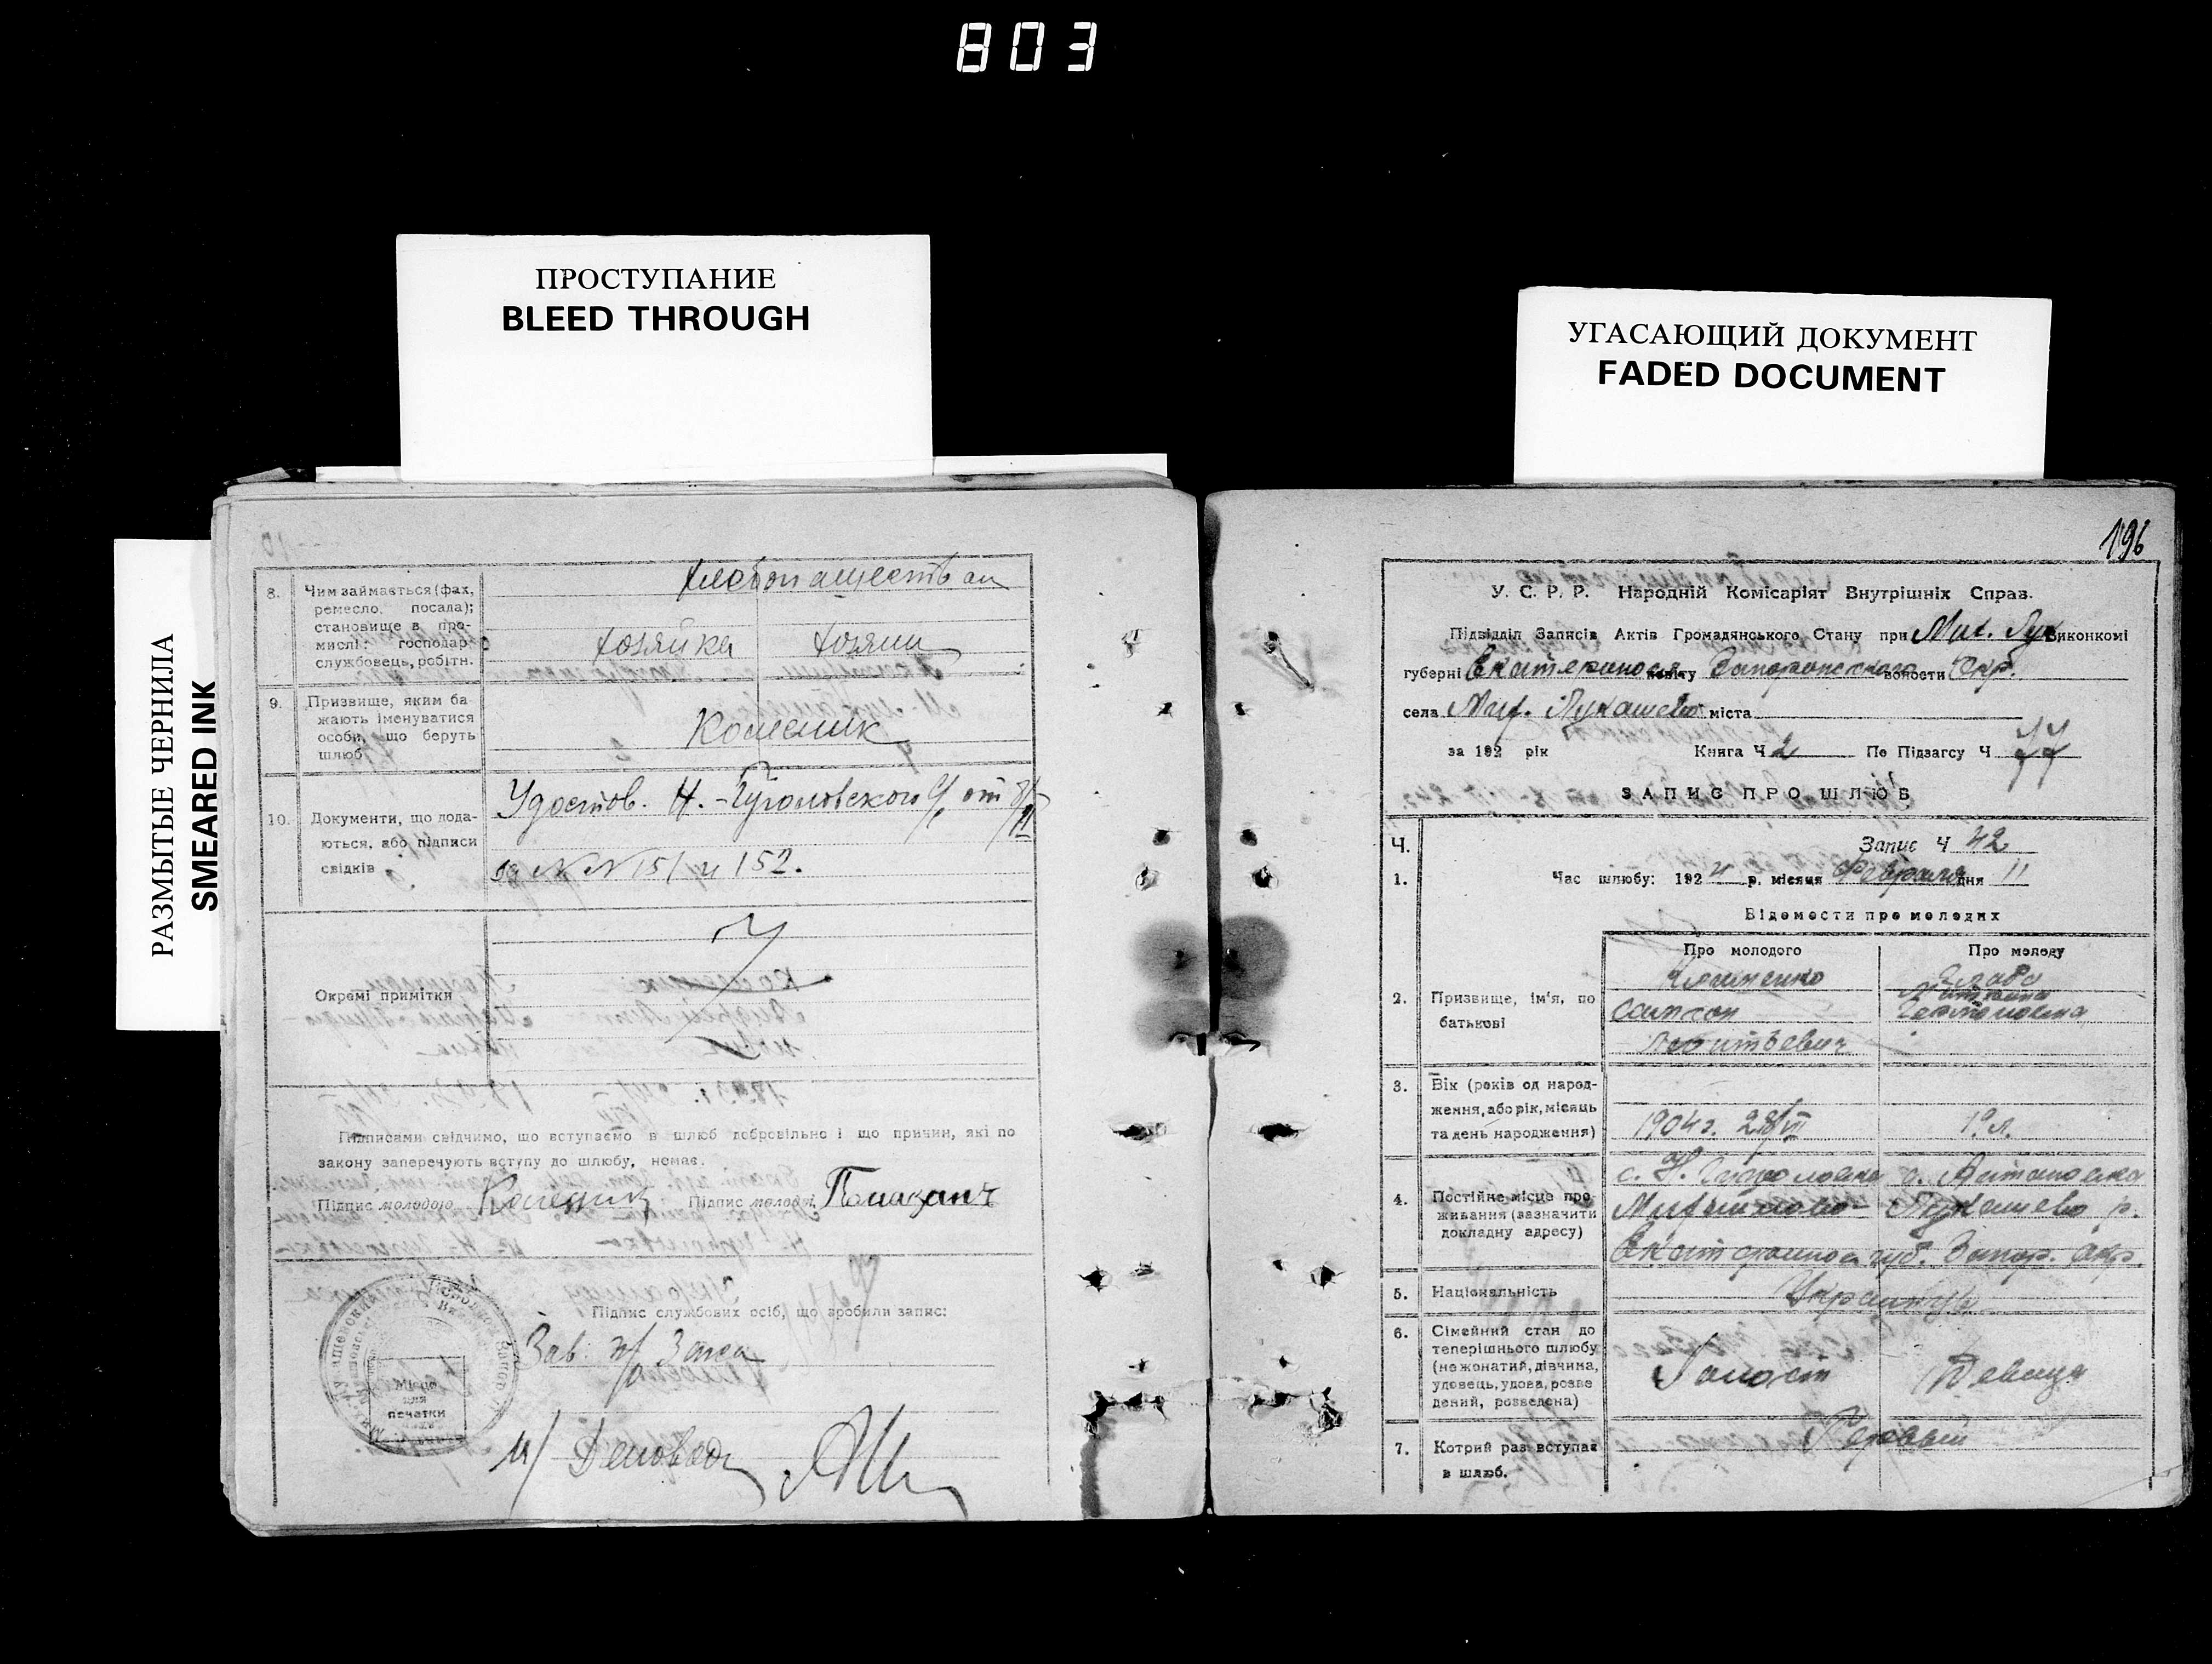 803
ПРОСТУПАНИЕ
BLEED THROUGH
УГАСАЮЩИЙ ДОКУМЕНТ
FADED DOCUMENT
РАЗМЫТЫЕ ЧЕРНИЛА
SMEARED INK
8.
Чим займається (фах,
ремесло, посада);
становище в про-
мислі: господар
службовець, робітн.
хозяйка хозяин
9.
Призвище, яким ба-
жають іменуватися
особи, що беруть
шлюб
Колесник
10.
Документи, що дода-
ються, або підписи
свідків
Удостов. Н.- от
за №№ 151 и 152.
Окремі примітки
Підписами свідчимо, що вступаємо в шлюб добровільно і що причин, які по
закону заперечують вступу до шлюбу, немає.
Підпис молодого Колесник Підпис молодої
Підпис службових осіб, що зробили запис:
Зав. п/ Загса
Місце
для
печатки
и/ Деловод
196
У. С. Р. Р. Народній Комісаріят Внутрішніх Справ.
Підвідділ Записів Актів Громадянського Стану при Мих. Лук Виконкомі
губерні Екатеринос повіту Запорожского волости Окр.
села Мих. Лукашево міста
за 192 рік Книга Ч 2 По Підзагсу Ч 77
ЗАПИС ПРО ШЛЮБ
Ч.
Запис Ч 42
1.
Час шлюбу: 192 4 р. місяця Февраля дня 11
Відомости про молодих
Про молодого Про молоду
2.
Призвище, ім'я, по
батькові
Клименко
Самсон
Леонтьевич
3.
Вік (років од народ-
ження, або рік, місяць
та день народження)
1904 г. 28/VI
4.
Постійне місце про-
живання (зазначити
докладну адресу)
с. Н. с.
Лукашево р.
Екатеринос губ. Запор. окр.
5.
Національність
Украинцы
6.
Сімейний стан до
теперішнього шлюбу
(не жонатий, дівчина,
удовець, удова, розве
дений, розведена)
Холост Девица
7.
Котрий раз вступає
в шлюб.
Первый